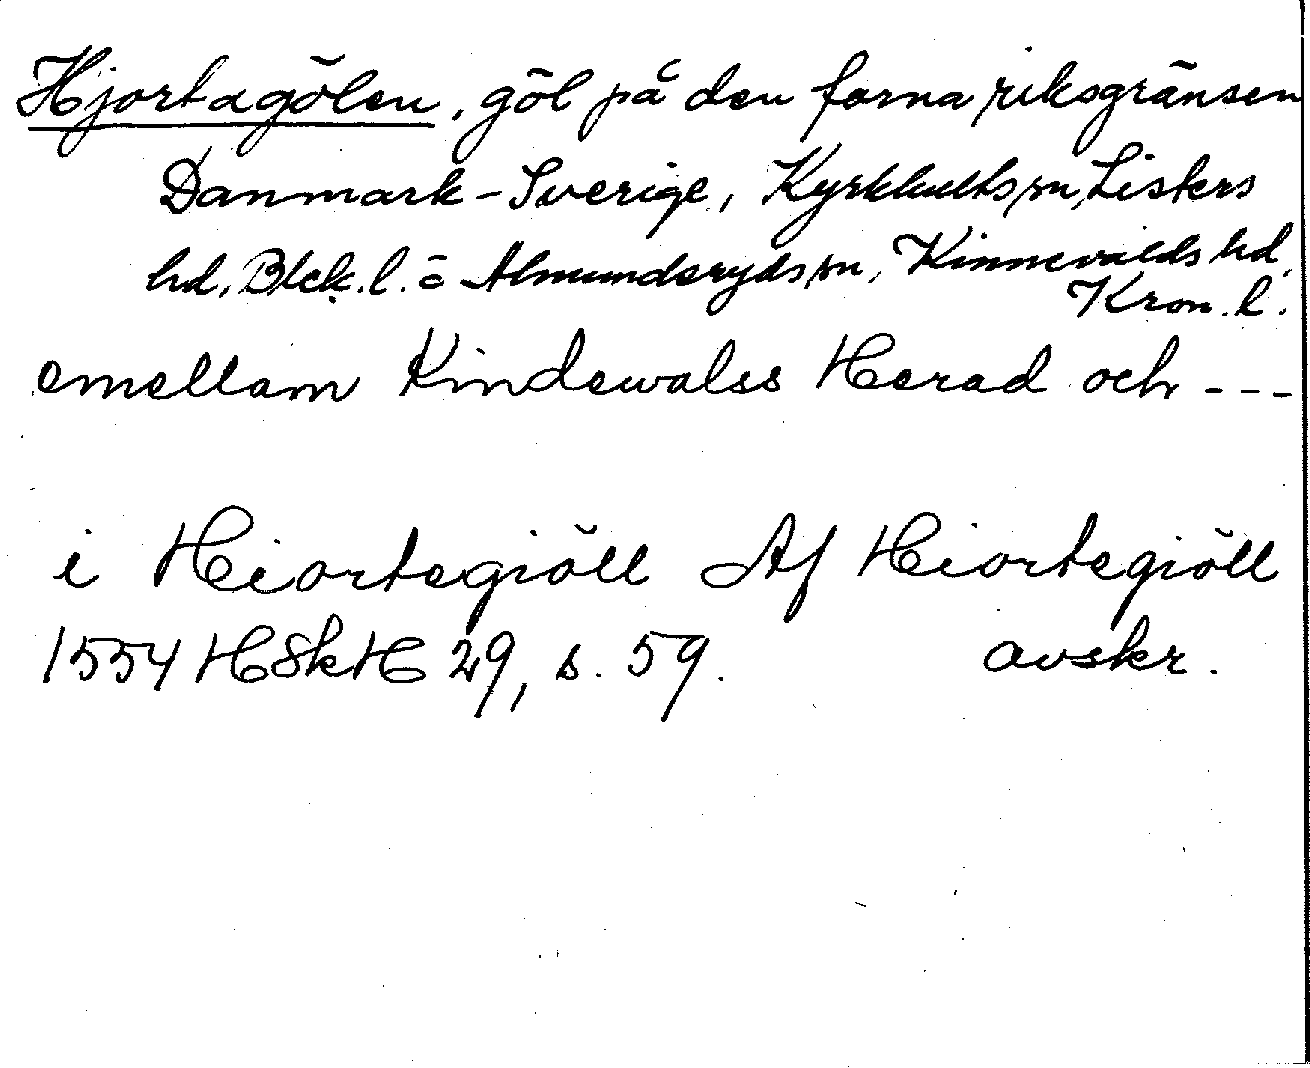 Hjortagölen, göl på den forna riksgränsen
Danmark-Sverige, Kyrkhults sn, Listers
hd, Blek. l. o Almundsryds sn, Kinnevalds hd,
Kron. l.
emellam Kindewalss Herad och ---
i Hiortegiöll Af Hiortegiöll
1554 HSkH 29, s. 59. avskr.